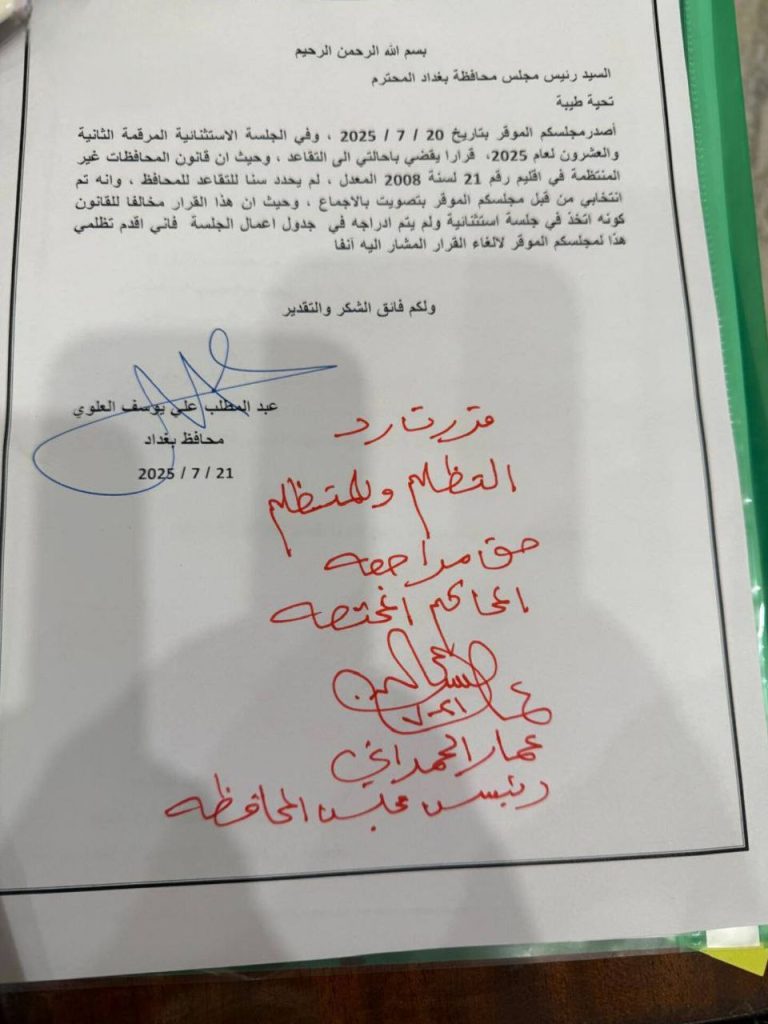 بسم الله الرحمن الرحيم
السيد رئيس مجلس محافظة بغداد المحترم
تحية طيبة
أصدرمجلسكم الموقر بتاريخ 20 / 7 / 2025 ، وفي الجلسة الاستثنائية المرقمة الثانية
والعشرون لعام 2025، قرارا يقضي باحالتي الى التقاعد ، وحيث ان قانون المحافظات غير
المنتظمة في اقليم رقم 21 لسنة 2008 المعدل ، لم يحدد سنا للتقاعد للمحافظ ، وانه تم
انتخابي من قبل مجلسكم الموقر بتصويت بالاجماع ، وحيث ان هذا القرار مخالفا للقانون
كونه اتخذ في جلسة استثنائية ولم يتم ادراجه في جدول اعمال الجلسة فاني اقدم تظلمي
هذا لمجلسكم الموقر لالغاء القرار المشار اليه آنفا
ولكم فائق الشكر والتقدير
عبد المطلب علي يوسف العلوي
محافظ بغداد
21 / 7 / 2025
قررت رد
التظلم وللمتظلم
حق مراجعه
المحاكم المختصه
عمار الحمداني
رئيس مجلس المحافظه